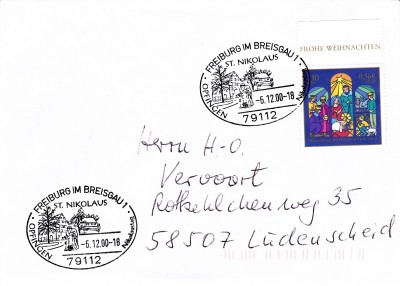 FROHE WEIHNACHTEN
FREIBURG IM BREISGAU 1
ST. NIKOLAUS
OPFINGEN
-6.12.00-18
79112
110
0,56€
Herrn H.-O.
Vervoort
Rotkehlchenweg 35
58507 Lüdenscheid
FREIBURG IM BREISGAU 1
ST. NIKOLAUS
OPFINGEN
-6.12.00-18
79112